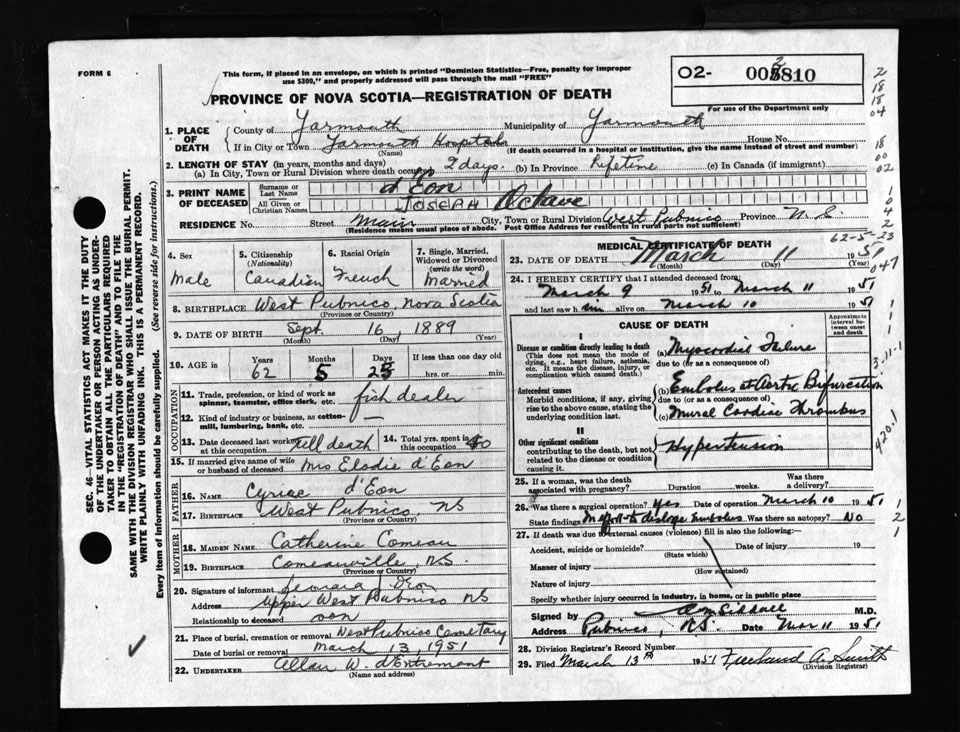 FORM 6
This form, if placed in an envelope, on which is printed "Dominion Statistics—Free, penalty for improper use $300," and properly addressed will pass through the mail "FREE"
O2- 002810
For use of the Department only
PROVINCE OF NOVA SCOTIA—REGISTRATION OF DEATH
1. PLACE OF DEATH
County of Yarmouth Municipality of Yarmouth
If in City or Town Yarmouth Hospital Street House No.
(Name) (If death occurred in a hospital or institution, give the name instead of street and number)
2. LENGTH OF STAY (in years, months and days)
(a) In City, Town or Rural Division where death occurred 2 days. (b) In Province Lifetime (c) In Canada (if immigrant)
3. PRINT NAME OF DECEASED
Surname or Last Name d'Eon
All Given or Christian Names JOSEPH Octave
RESIDENCE No. Street Main City, Town or Rural Division West Pubnico Province N.S.
(Residence means usual place of abode. Post Office Address for residents in rural parts not sufficient)
62-5-23
4. Sex Male
5. Citizenship (Nationality) Canadian
6. Racial Origin French
7. Single, Married, Widowed or Divorced (write the word) Married
8. BIRTHPLACE West Pubnico, Nova Scotia
(Province or Country)
9. DATE OF BIRTH Sept. 16, 1889
(Month) (Day) (Year)
10. AGE in Years 62 Months 5 Days 25 If less than one day old hrs. or min.
OCCUPATION
11. Trade, profession, or kind of work as spinner, teamster, office clerk, etc. fish dealer
12. Kind of industry or business, as cotton-mill, lumbering, bank, etc. —
13. Date deceased last worked at this occupation till death
14. Total yrs. spent in this occupation 40
15. If married give name of wife or husband of deceased Mrs Elodie d'Eon
FATHER
16. NAME Cyriac d'Eon
17. BIRTHPLACE West Pubnico, NS
(Province or Country)
MOTHER
18. MAIDEN NAME Catherine Comeau
19. BIRTHPLACE Comeauville, N.S.
(Province or Country)
20. Signature of informant
Address Upper West Pubnico NS
Relationship to deceased son
21. Place of burial, cremation or removal West Pubnico Cemetary
Date of burial or removal March 13, 1951
22. UNDERTAKER Allan W. d'Entremont
(Name and address)
MEDICAL CERTIFICATE OF DEATH
23. DATE OF DEATH March 11 1951
(Month) (Day) (Year)
24. I HEREBY CERTIFY that I attended deceased from:
March 9 1951 to March 11 1951
and last saw him alive on March 10 1951
CAUSE OF DEATH
Approximate interval between onset and death
I
Disease or condition directly leading to death
(This does not mean the mode of dying, e.g., heart failure, asthenia, etc. It means the disease, injury, or complication which caused death.)
(a) Myocardial Failure
due to (or as a consequence of)
Antecedent causes
Morbid conditions, if any, giving rise to the above cause, stating the underlying condition last.
(b) Embolus at Aortic Bifurcation
due to (or as a consequence of)
(c) Mural Cardiac Thrombus
II
Other significant conditions contributing to the death, but not related to the disease or condition causing it.
Hypertension
25. If a woman, was the death associated with pregnancy? Duration weeks. Was there a delivery?
26. Was there a surgical operation? Yes Date of operation March 10 1951
State findings In effort to dislodge Embolus Was there an autopsy? No
27. If death was due to external causes (violence) fill in also the following:
Accident, suicide or homicide? Date of injury 19
(State which)
Manner of injury
(How sustained)
Nature of injury
Specify whether injury occurred in industry, in home, or in public place
Signed by M.D.
Address Pubnico, N.S. Date Mar 11 1951
28. Division Registrar's Record Number
29. Filed March 13th 1951 Freeland A. Smith
(Division Registrar)
SEC. 46—VITAL STATISTICS ACT MAKES IT THE DUTY OF THE UNDERTAKER OR PERSON ACTING AS UNDERTAKER TO OBTAIN ALL THE PARTICULARS REQUIRED IN THE "REGISTRATION OF DEATH" AND TO FILE THE SAME WITH THE DIVISION REGISTRAR WHO SHALL ISSUE THE BURIAL PERMIT.
WRITE PLAINLY WITH UNFADING INK. THIS IS A PERMANENT RECORD.
Every item of information should be carefully supplied. (See reverse side for instructions.)
2
18
18
04
18
00
02
1
0
4
2
047
1
1
1
3-11-1
420.1
1
2
1